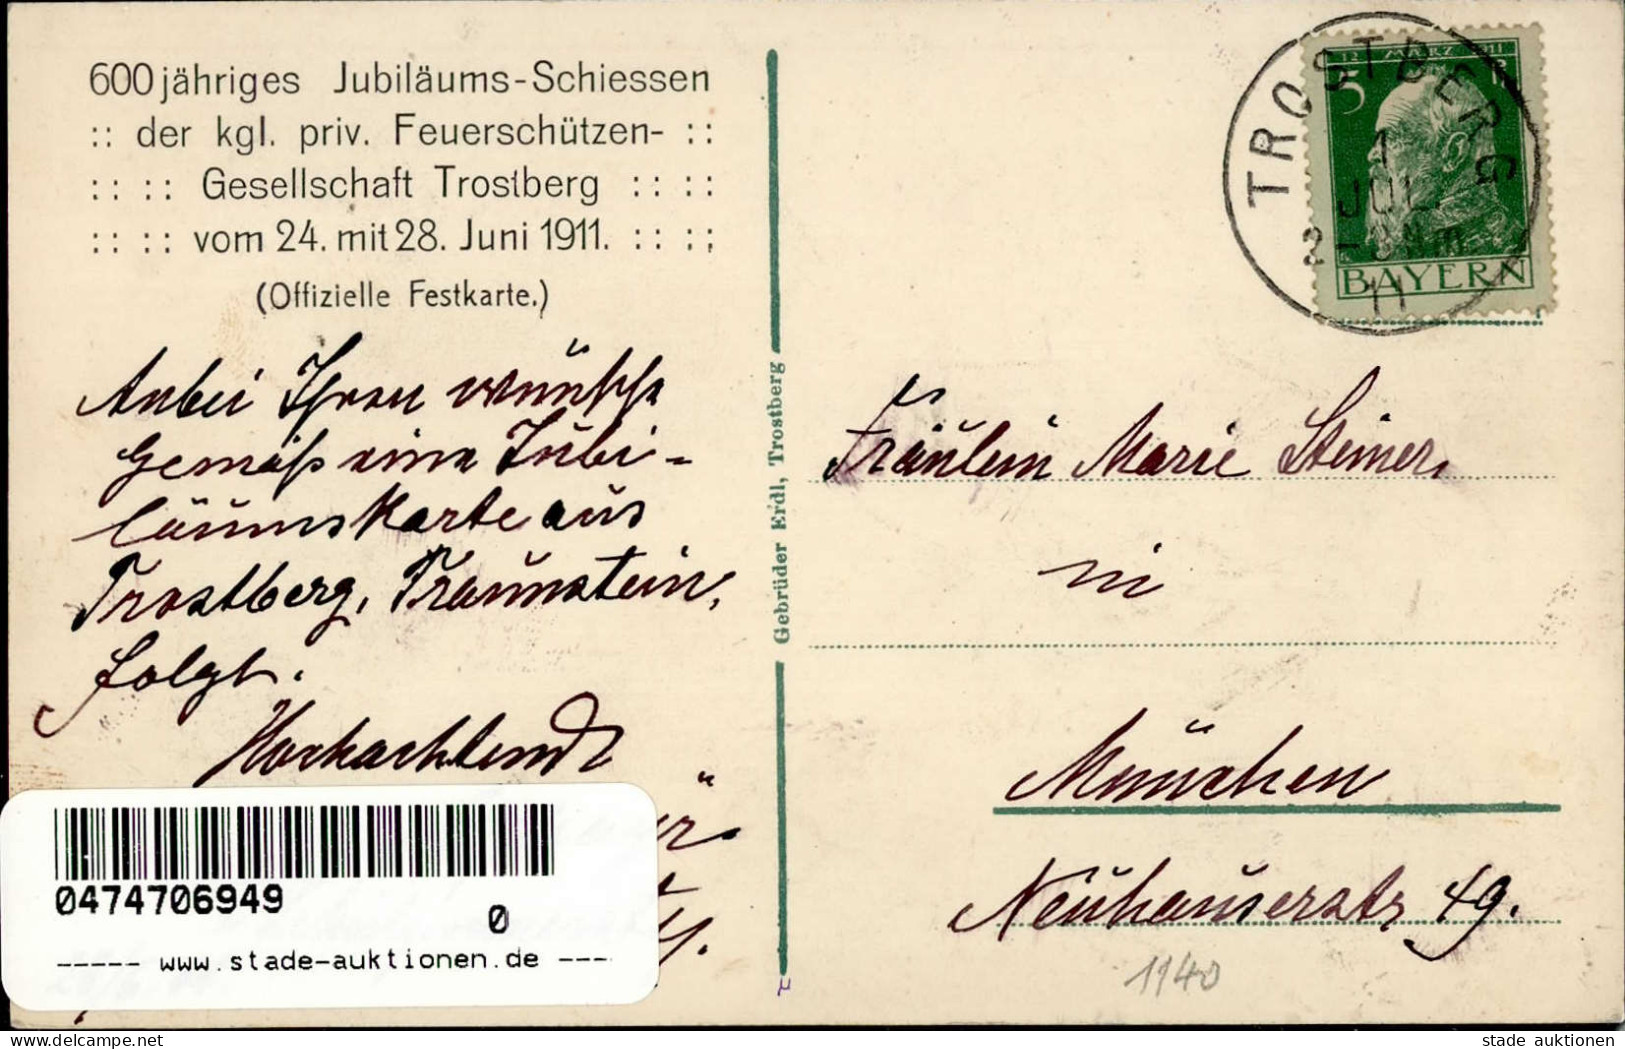 600 jähriges Jubiläums-Schiessen
:: der kgl. priv. Feuerschützen- ::
:: :: Gesellschaft Trostberg :: ::
:: :: vom 24. mit 28. Juni 1911. :: ::
(Offizielle Festkarte.)
Anbei Ihren wünsche
gemäß eine Jubi-
läumskarte aus
Trostberg, Traunstein,
folgt.
Hochachtend
0474706949
0
----- www.stade-auktionen.de ---
Gebrüder Erdl, Trostberg
TROSTBERG
1
JUL
2-3 Nm
11
12 MÄRZ 1911
5 P
BAYERN
Fräulein Marie Steiner,
in
München
Neuhauserstr 49.
1140
delcampe.net
stade auktionen